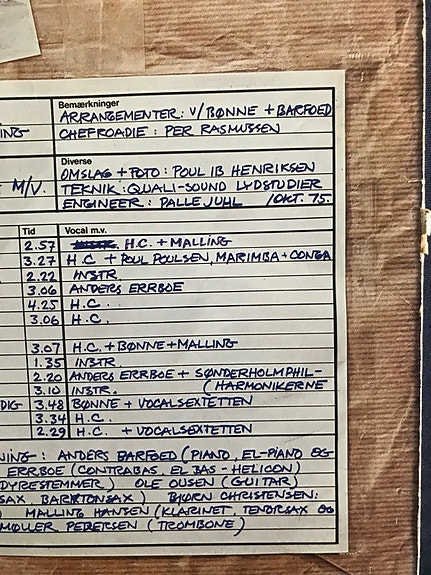 Bemærkninger
ARRANGEMENTER: V/BØNNE + BARFOED
ING CHEFROADIE : PER RASMUSSEN
Diverse
OMSLAG + FOTO: POUL IB HENRIKSEN
M/V. TEKNIK: QUALI-SOUND LYDSTUDIER
ENGINEER: PALLE JUHL 1OKT. 75.
Tid Vocal m.v.
2.57 H.C. + MALLING
3.27 H.C + POUL POULSEN, MARIMBA + CONGA
2.22 INSTR.
3.06 ANDERS ERRBOE
4.25 H.C.
3.06 H.C.
3.07 H.C. + BØNNE + MALLING
1.35 INSTR.
2.20 ANDERS ERRBOE + SØNDERHOLM PHIL-
3.10 INSTR. (HARMONIKERNE
DIG 3.48 BØNNE + VOCALSEXTETTEN
3.34 H.C.
2.29 H.C. + VOCALSEXTETTEN
NING: ANDERS BARFOED (PIANO, EL-PIANO OG
ERRBOE (CONTRABAS, EL BAS-HELICON)
DYRESTEMMER) OLE OUSEN (GUITAR)
SAX, BARYTONSAX) BJØRN CHRISTENSEN:
MALLING HANSEN (KLARINET, TENORSAX OG
MØLLER PEDERSEN (TROMBONE)